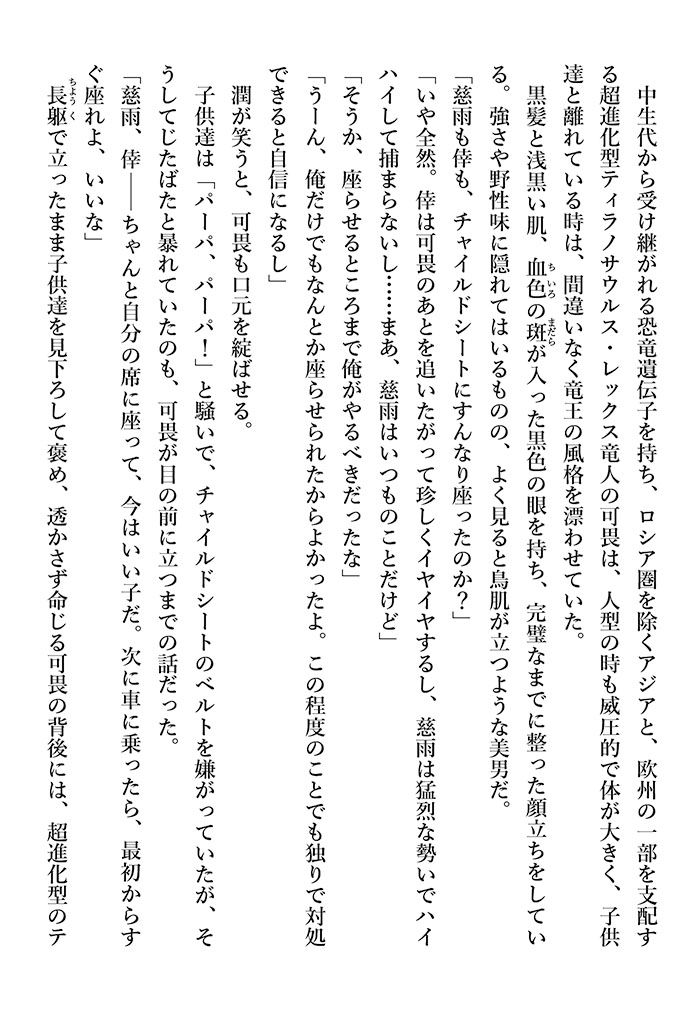 中生代から受け継がれる恐竜遺伝子を持ち、ロシア圏を除くアジアと、欧州の一部を支配す
る超進化型ティラノサウルス・レックス竜人の可畏は、人型の時も威圧的で体が大きく、子供
達と離れている時は、間違いなく竜王の風格を漂わせていた。
　黒髪と浅黒い肌、血色の斑が入った黒色の眼を持ち、完璧なまでに整った顔立ちをしてい
る。強さや野性味に隠れてはいるものの、よく見ると鳥肌が立つような美男だ。
「慈雨も倖も、チャイルドシートにすんなり座ったのか？」
「いや全然。倖は可畏のあとを追いたがって珍しくイヤイヤするし、慈雨は猛烈な勢いでハイ
ハイして捕まらないし……まあ、慈雨はいつものことだけど」
「そうか、座らせるところまで俺がやるべきだったな」
「うーん、俺だけでもなんとか座らせられたからよかったよ。この程度のことでも独りで対処
できると自信になるし」
　潤が笑うと、可畏も口元を綻ばせる。
　子供達は「パーパ、パーパ！」と騒いで、チャイルドシートのベルトを嫌がっていたが、そ
うしてじたばたと暴れていたのも、可畏が目の前に立つまでの話だった。
「慈雨、倖――ちゃんと自分の席に座って、今はいい子だ。次に車に乗ったら、最初からす
ぐ座れよ、いいな」
　長躯で立ったまま子供達を見下ろして褒め、透かさず命じる可畏の背後には、超進化型のテ